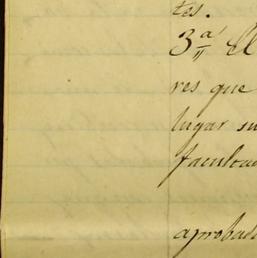 tes.
3ª El
res que
lugar su
facul
aprobad